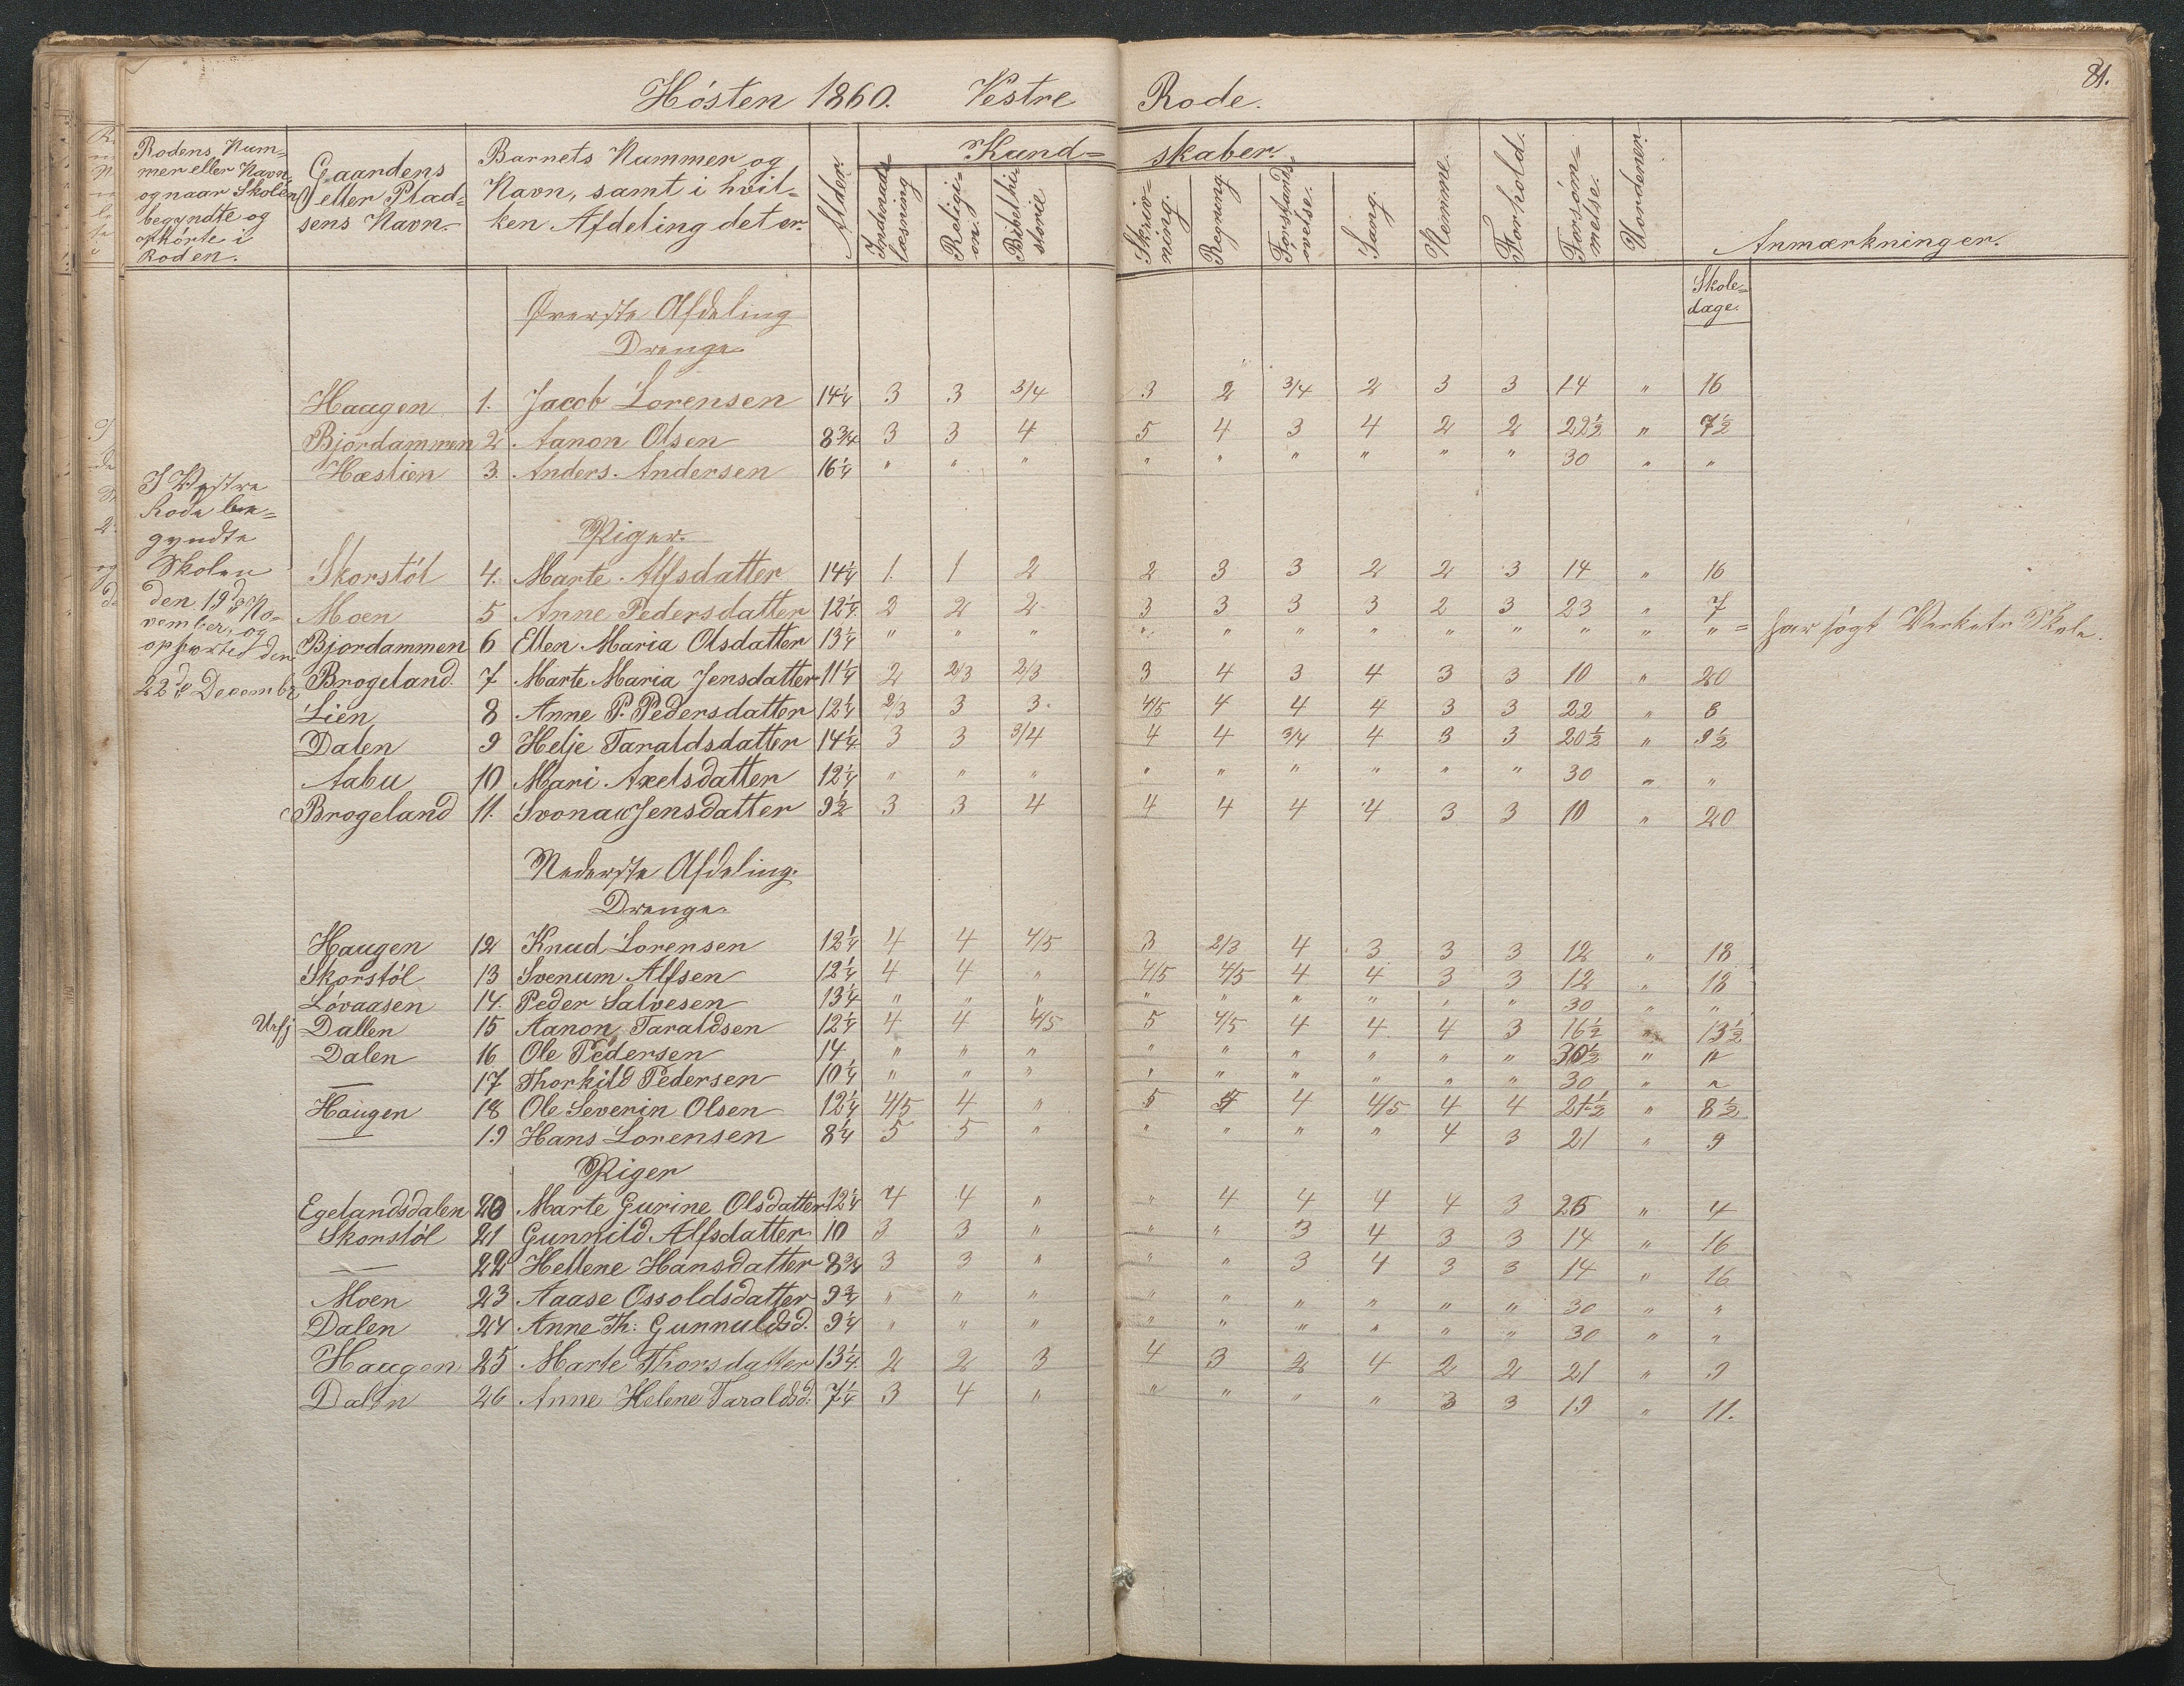 81.
Hósten 1860. Vestre Rode.
Rodens Num=
mer eller Navn,
og naar Skolen
begyndte og
ophórte i
Roden.
Gaardens
eller Plad=
sens Navn.
Barnets Nummer og
Navn, samt i hvil=
ken Afdeling det er.
Alder.
Kund= skaber.
Indenads=
læsning
Religi=
on.
Bibelhi=
storie
Skriv=
ning.
Regning.
Forstands=
øvelse.
Sang.
Nemme.
Forhold.
Forsøm=
melse.
Vordener.
Anmærkninger.
Skole=
dage.
Øverste Afdeling
Drenge
Haagen 1. Jacob Lorensen 14¼ 3 3 3/4 3 2 3/4 2 3 3 14 " 16
Bjordammen 2. Aanon Olsen 8¾ 3 3 4 5 4 3 4 2 2 22½ " 7½
Hæstien 3. Anders Andersen 16¼ " " " " " " " " " 30 " "
I Vestre
Rode be=
gyndte
Skolen
den 19de No=
vember, og
ophørte den
22de Decembr
Piger.
Skorstól 4. Marte Alfsdatter 14¼ 1. 1 2 2 3 3 2 2 3 14 " 16
Moen 5 Anne Pedersdatter 12¼ 2 2 2 3 3 3 3 2 3 23 " 7
Bjordammen 6 Ellen Maria Olsdatter 13¼ " " " " " " " " " " " " = har søgt Verkets Skole.
Brogeland. 7 Marte Maria Jensdatter 11¼ 2 2/3 2/3 3 4 3 4 3 3 10 " 20
Lien 8 Anne P. Pedersdatter 12¼ 2/3 3 3. 4/5 4 4 4 3 3 22 " 8
Dalen 9 Helje Taraldsdatter 14¼ 3 3 3/4 4 4 3/4 4 3 3 20½ " 9½
Aabu 10 Mari Axelsdatter 12¼ " " " " " " " " " 30 " "
Brogeland 11. Svonaw Jensdatter 9½ 3 3 4 4 4 4 4 3 3 10 " 20
Nederste Afdeling.
Drenge
Haugen 12 Knud Lorensen 12¼ 4 4 4/5 3 2/3 4 3 3 3 12 " 18
Skorstól 13 Svenum Alfsen 12¼ 4 4 " 4/5 4/5 4 4 3 3 12 " 18
Lóvaasen 14. Peder Salvesen 13¼ " " " " " " " " " 30 " "
Dallen 15 Aanon Taraldsen 12¼ 4 4 4/5 5 4/5 4 4 4 3 16½ " 13½
Dalen 16 Ole Pedersen 14 " " " " " " " " " 30½ " "
— 17 Thorkild Pedersen 10¼ " " " " " " " " " 30 " "
Haugen 18 Ole Severin Olsen 12¼ 4/5 4 " 5 5 4 4/5 4 4 21½ " 8½
— 19 Hans Lorensen 8¼ 5 5 " " " " " 4 3 21 " 9
Piger
Egelandsdalen 20 Marte Gurine Olsdatter 12¼ 4 4 " " 4 4 4 4 3 26 " 4
Skorstól 21 Gunnild Alfsdatter 10 3 3 " " " 3 4 3 3 14 " 16
— 22 Hellene Hansdatter 8¾ 3 3 " " " 3 4 3 3 14 " 16
Moen 23 Aaase Ossoldsdatter 9¾ " " " " " " " " " 30 " "
Dalen 24 Anne Th: Gunnuldsd. 9¼ " " " " " " " " " 30 " "
Haagen 25 Marte Thorsdatter 13¼ 2 2 3 4 3 2 4 2 2 21 " 9
Dalen 26 Anne Helene Taraldsd: 7¼ 3 4 " " " " " 3 3 19 " 11.